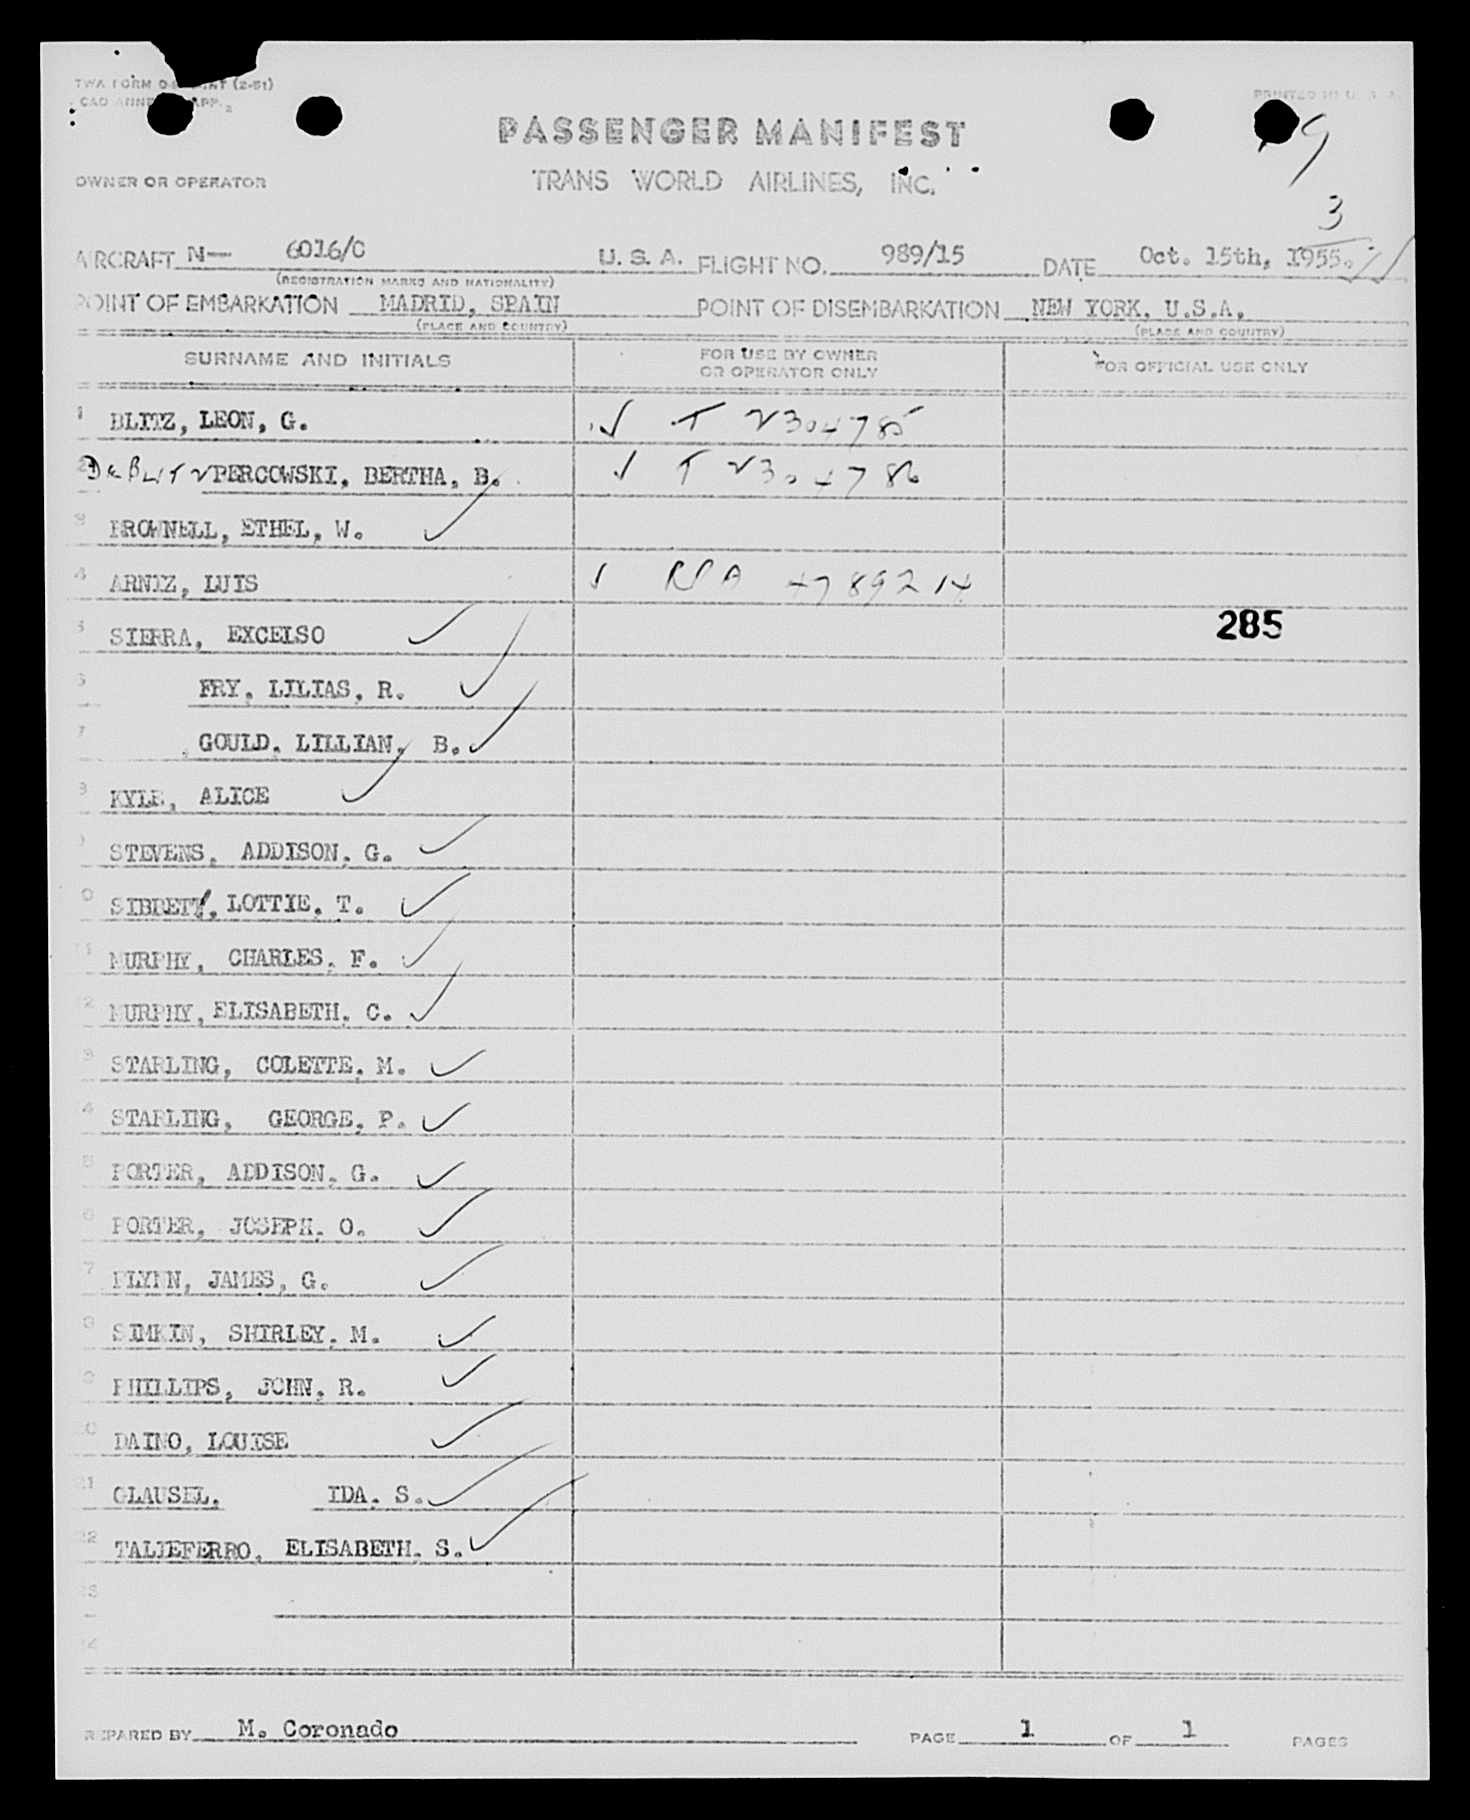 TWA FORM (2-51)
PRINTED IN U. S. A.
PASSENGER MANIFEST
9
OWNER OR OPERATOR TRANS WORLD AIRLINES, INC.
3
AIRCRAFT N- 6016/C U. S. A. FLIGHT NO. 989/15 DATE Oct. 15th, 1955.
(REGISTRATION MARKS AND NATIONALITY)
POINT OF EMBARKATION MADRID, SPAIN POINT OF DISEMBARKATION NEW YORK, U.S.A.
(PLACE AND COUNTRY) (PLACE AND COUNTRY)
SURNAME AND INITIALS FOR USE BY OWNER OR OPERATOR ONLY FOR OFFICIAL USE ONLY
1 BLITZ, LEON, G. T V304785
2 PERCOWSKI, BERTHA, B. T V304786
3 BROWNELL, ETHEL, W.
4 ARNIZ, LUIS
5 SIERRA, EXCELSO 285
6 FRY, LILIAS, R.
7 GOULD, LILLIAN, B.
8 KYLE, ALICE
9 STEVENS, ADDISON, G.
10 SIBBETT, LOTTIE, T.
11 MURPHY, CHARLES, F.
12 MURPHY, ELISABETH, C.
13 STARLING, COLETTE, M.
14 STARLING, GEORGE, P.
15 PORTER, ADDISON, G.
16 PORTER, JOSEPH, O.
17 FLYNN, JAMES, G.
18 SIMKIN, SHIRLEY, M.
19 PHILLIPS, JOHN, R.
20 DAINO, LOUISE
21 CLAUSEL, IDA, S.
22 TALIEFERRO, ELISABETH, S.
23
24
PREPARED BY M. Coronado PAGE 1 OF 1 PAGES